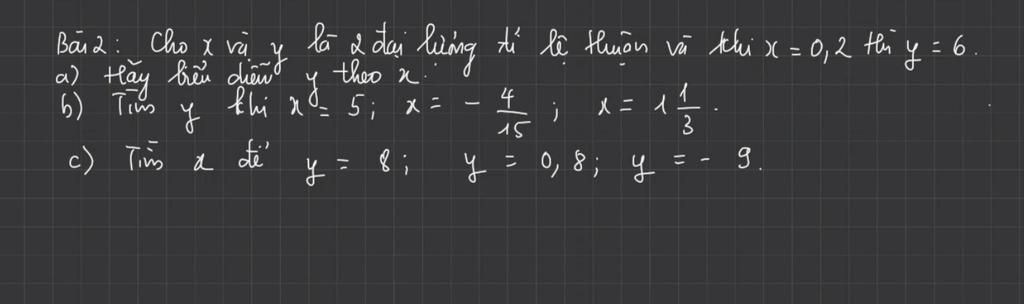 Bài 2: Cho x và y là 2 đại lượng tỉ lệ thuận và khi x = 0,2 thì y = 6.
a) Hãy biểu diễn y theo x.
b) Tìm y khi x = 5; x = - 4/15; x = 1 1/3.
c) Tìm x để y = 8; y = 0,8; y = - 9.